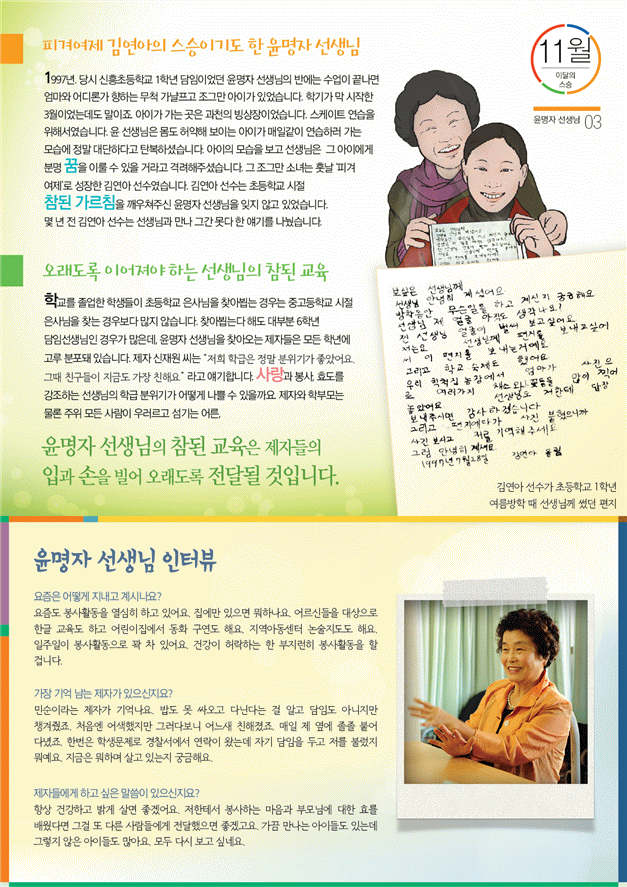 피겨여제 김연아의 스승이기도 한 윤명자 선생님
11월
이달의
스승
윤명자 선생님 03
1997년. 당시 신흥초등학교 1학년 담임이었던 윤명자 선생님의 반에는 수업이 끝나면
엄마와 어디론가 향하는 무척 가냘프고 조그만 아이가 있었습니다. 학기가 막 시작한
3월이었는데도 말이죠. 아이가 가는 곳은 과천의 빙상장이었습니다. 스케이트 연습을
위해서였습니다. 윤 선생님은 몸도 허약해 보이는 아이가 매일같이 연습하러 가는
모습에 정말 대단하다고 탄복하셨습니다. 아이의 모습을 보고 선생님은 그 아이에게
분명 꿈을 이룰 수 있을 거라고 격려해주셨습니다. 그 조그만 소녀는 훗날 '피겨
여제'로 성장한 김연아 선수였습니다. 김연아 선수는 초등학교 시절
참된 가르침을 깨우쳐주신 윤명자 선생님을 잊지 않고 있었습니다.
몇 년 전 김연아 선수는 선생님과 만나 그간 못다 한 얘기를 나눴습니다.
오래도록 이어져야 하는 선생님의 참된 교육
학교를 졸업한 학생들이 초등학교 은사님을 찾아뵙는 경우는 중고등학교 시절
은사님을 찾는 경우보다 많지 않습니다. 찾아뵙는다 해도 대부분 6학년
담임선생님인 경우가 많은데, 윤명자 선생님을 찾아오는 제자들은 모든 학년에
고루 분포돼 있습니다. 제자 신재원 씨는 "저희 학급은 정말 분위기가 좋았어요.
그때 친구들이 지금도 가장 친해요." 라고 얘기합니다. 사랑과 봉사, 효도를
강조하는 선생님의 학급 분위기가 어떻게 나쁠 수 있을까요. 제자와 학부모는
물론 주위 모든 사람이 우러르고 섬기는 어른.
윤명자 선생님의 참된 교육은 제자들의
입과 손을 빌어 오래도록 전달될 것입니다.
보싶은 선생님께
선생님 안녕히 계셨어요
방학동안 무슨일을 하고 계신지 궁금해요
선생님 제 얼굴 아직도 생각나요?
전 선생님 얼굴이 벌써 보고싶어요
저는요 선생님께 편지를 보내고싶어
서 이 편지를 보내는거예요
그리고 학교 숙제도 했어요
우리 학적집 농장에서 엄마가 사진으
로 여러가지 채소와 꽃들을 많이 찍어
놓았어요 선생님도 저한테 답장
보내주시면 감사하겠습니다
그리고 편지에다가 사진 붙였으니까
사진 보시고 저를 기억해주세요
그럼 안녕히 계세요
1997년 7월 28일 김연아 올림
김연아 선수가 초등학교 1학년
여름방학 때 선생님께 썼던 편지
윤명자 선생님 인터뷰
요즘은 어떻게 지내고 계시나요?
요즘도 봉사활동을 열심히 하고 있어요. 집에만 있으면 뭐하나요. 어르신들을 대상으로
한글 교육도 하고 어린이집에서 동화 구연도 해요. 지역아동센터 논술지도도 해요.
일주일이 봉사활동으로 꽉 차 있어요. 건강이 허락하는 한 부지런히 봉사활동을 할
겁니다.
가장 기억 남는 제자가 있으신지요?
민순이라는 제자가 기억나요. 밥도 못 싸오고 다닌다는 걸 알고 담임도 아니지만
챙겨줬죠. 처음엔 어색했지만 그러다보니 어느새 친해졌죠. 매일 제 옆에 졸졸 붙어
다녔죠. 한번은 학생문제로 경찰서에서 연락이 왔는데 자기 담임을 두고 저를 불렀지
뭐예요. 지금은 뭐하며 살고 있는지 궁금해요.
제자들에게 하고 싶은 말씀이 있으신지요?
항상 건강하고 밝게 살면 좋겠어요. 저한테서 봉사하는 마음과 부모님에 대한 효를
배웠다면 그걸 또 다른 사람들에게 전달했으면 좋겠고요. 가끔 만나는 아이들도 있는데
그렇지 않은 아이들도 많아요. 모두 다시 보고 싶네요.